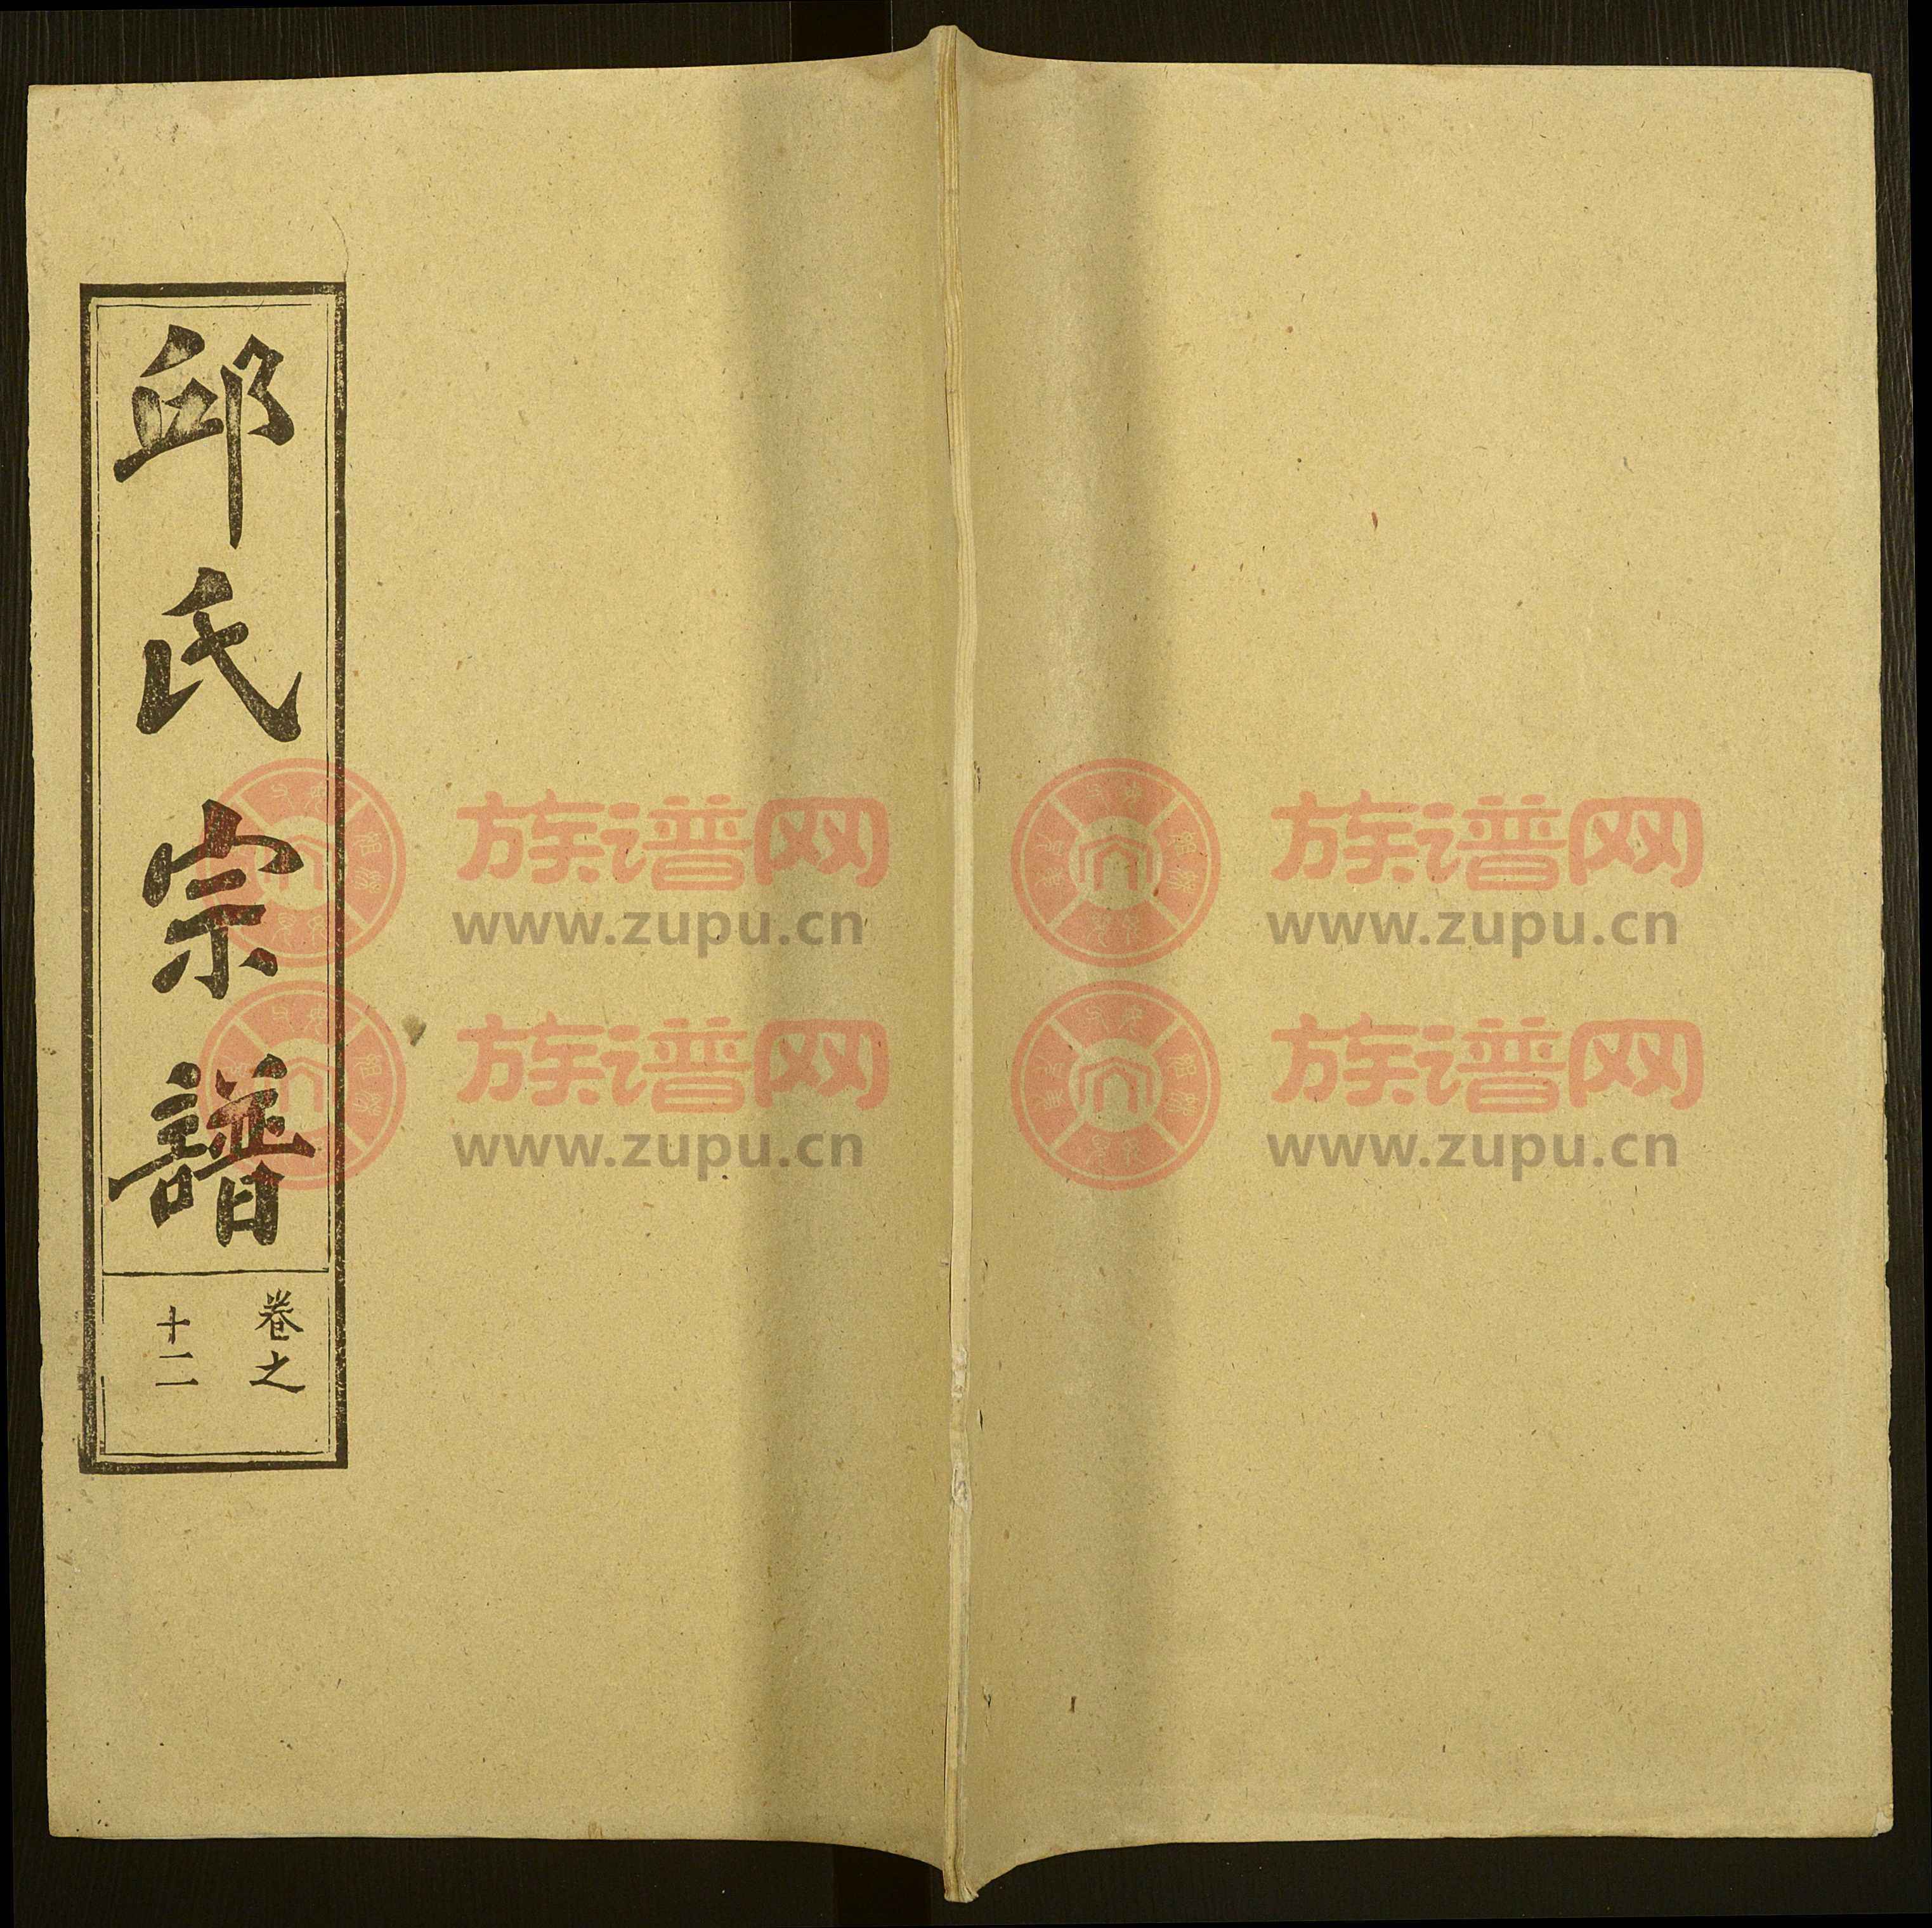 邱氏宗譜
卷之
十二
族谱网
www.zupu.cn
族谱网
www.zupu.cn
族谱网
www.zupu.cn
族谱网
www.zupu.cn